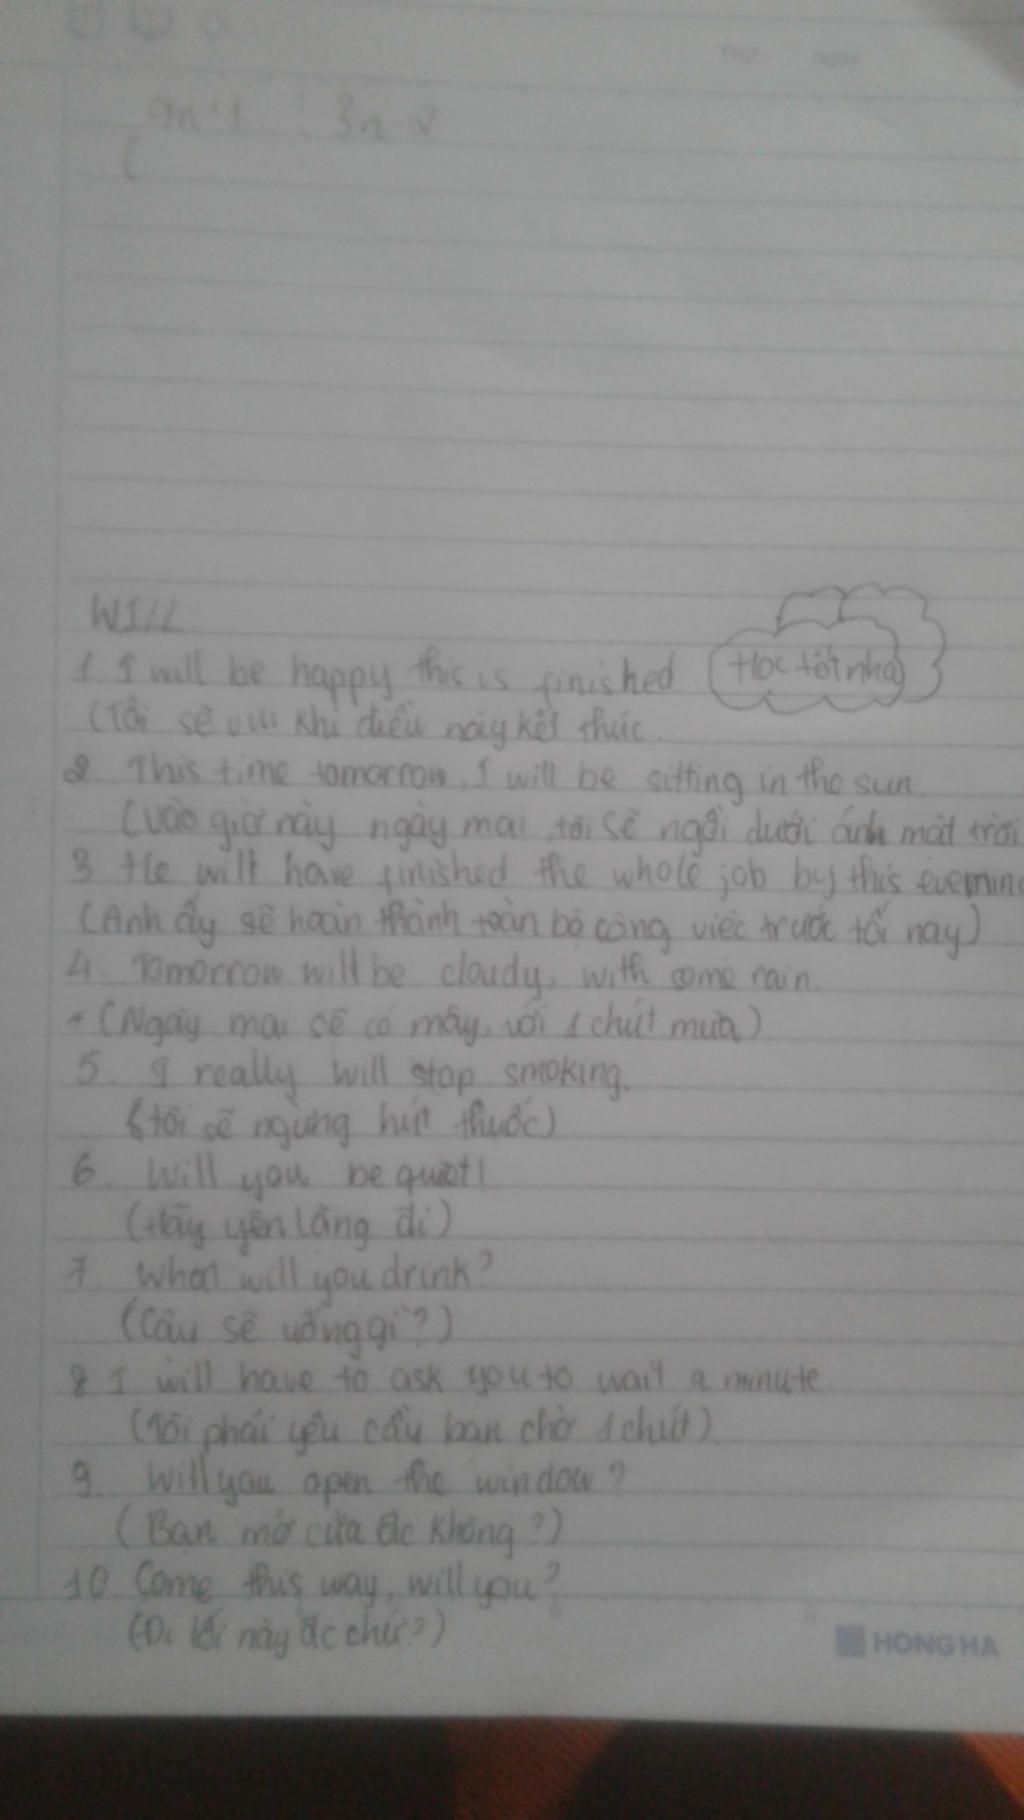 Thứ ngày
9n+1 : 3n-2
(
WILL
1 I will be happy this is finished
Học tốt nha
(Tôi sẽ vui khi điều này kết thúc.
2. This time tomorrow, I will be sitting in the sun
(Vào giờ này ngày mai, tôi sẽ ngồi dưới ánh mặt trời
3 He will have finished the whole job by this evening
(Anh ấy sẽ hoàn thành toàn bộ công việc trước tối nay)
4. Tomorrow will be cloudy, with some rain.
(Ngày mai sẽ có mây, với 1 chút mưa)
5. I really will stop smoking.
(tôi sẽ ngừng hút thuốc)
6. Will you be quiet!
(Hãy yên lặng đi)
7. What will you drink?
(Cậu sẽ uống gì?)
8 I will have to ask you to wait a minute.
(Tôi phải yêu cầu bạn chờ 1 chút)
9. Will you open the window?
(Bạn mở cửa đc không?)
10 Come this way, will you?
(Đi lối này đc chứ?)
HONG HA